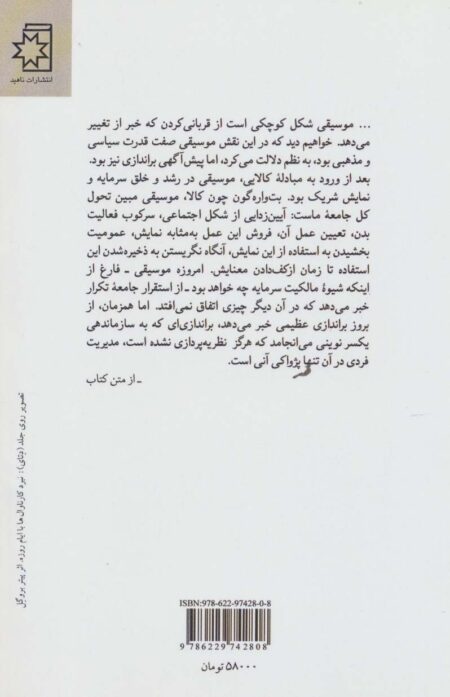 انتشارات ناهید
... موسیقی شکل کوچکی است از قربانی‌کردن که خبر از تغییر
می‌دهد. خواهیم دید که در این نقش موسیقی صفت قدرت سیاسی
و مذهبی بود، به نظم دلالت می‌کرد، اما پیش‌آگهی براندازی نیز بود.
بعد از ورود به مبادلهٔ کالایی، موسیقی در رشد و خلق سرمایه و
نمایش شریک بود. بت‌واره‌گون چون کالا، موسیقی مبین تحول
کل جامعهٔ ماست: آیین‌زدایی از شکل اجتماعی، سرکوب فعالیت
بدن، تعیین عمل آن، فروش این عمل به‌مثابه نمایش، عمومیت
بخشیدن به استفاده از این نمایش، آنگاه نگریستن به ذخیره‌شدن این
استفاده تا زمان ازکف‌دادن معنایش. امروزه موسیقی ـ فارغ از
اینکه شیوهٔ مالکیت سرمایه چه خواهد بود ـ از استقرار جامعهٔ تکرار
خبر می‌دهد که در آن دیگر چیزی اتفاق نمی‌افتد. اما همزمان، از
بروز براندازی عظیمی خبر می‌دهد، براندازی‌ای که به سازماندهی
یکسر نوینی می‌انجامد که هرگز نظریه‌پردازی نشده است، مدیریت
فردی در آن تنها پژواکی آنی است.
ـ از متن کتاب
تصویر روی جلد (بتای): نبرد کارناوال‌ها با ایام روزه، اثر پیتر بروگل
ISBN:978-622-97428-0-8
9786229742808
۵۸۰۰۰ تومان